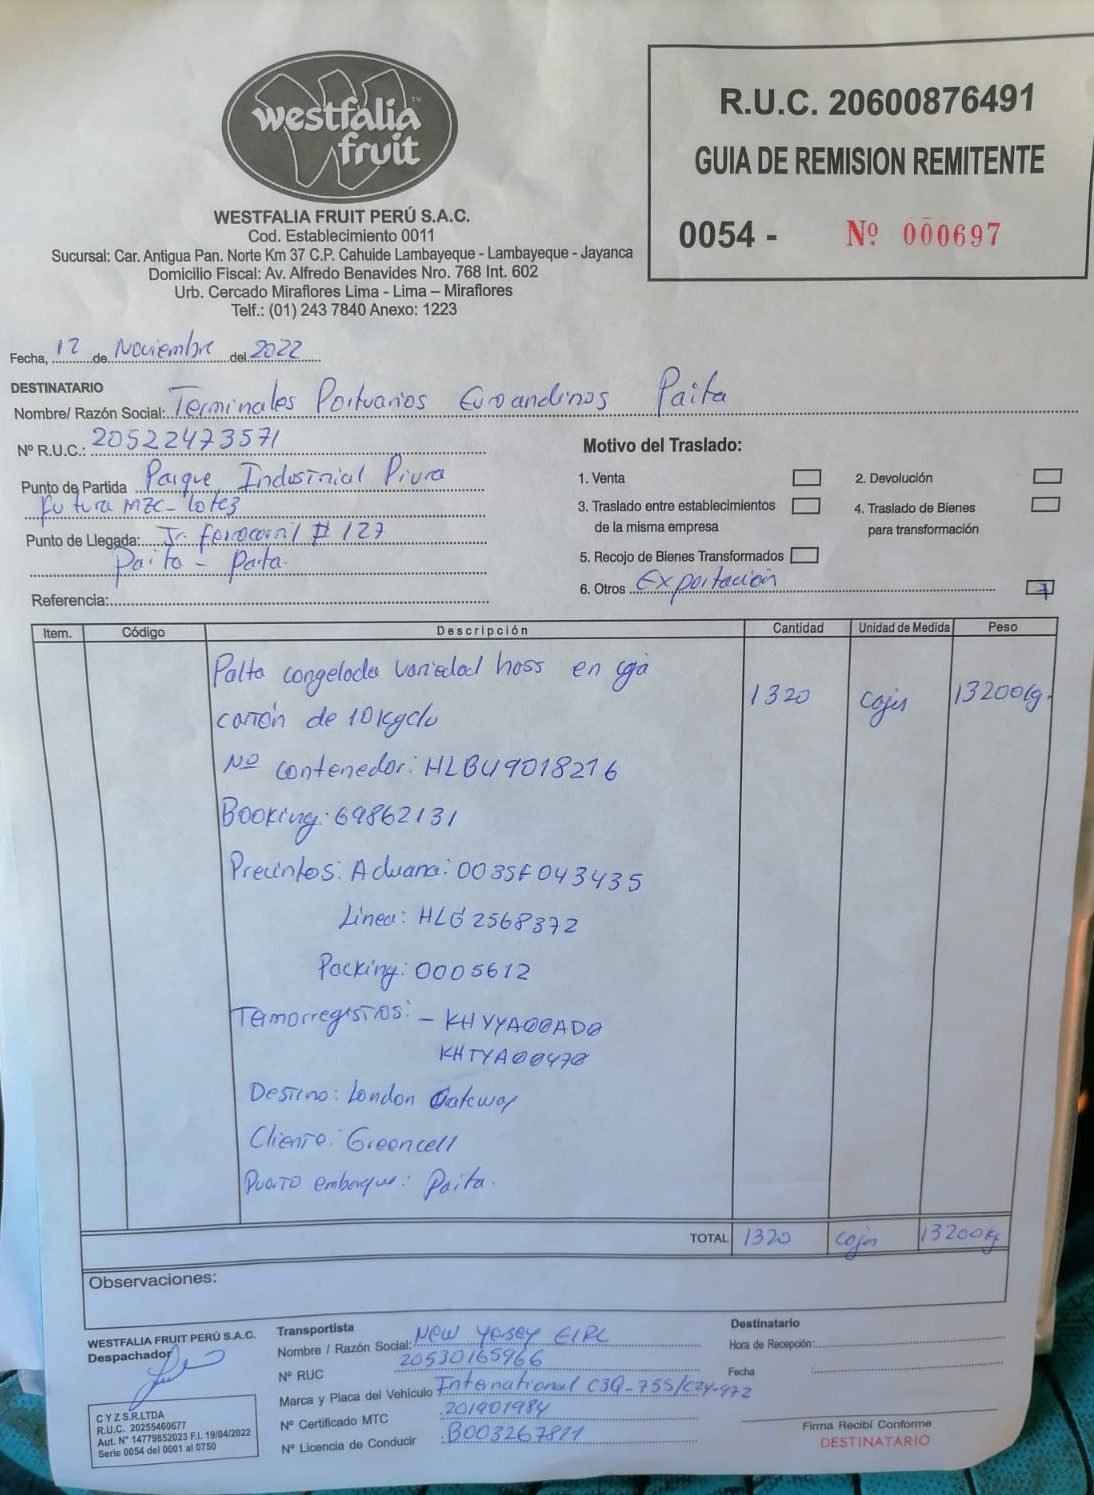 westfalia
fruit
WESTFALIA FRUIT PERÚ S.A.C.
Cod. Establecimiento 0011
Sucursal: Car. Antigua Pan. Norte Km 37 C.P. Cahuide Lambayeque - Lambayeque - Jayanca
Domicilio Fiscal: Av. Alfredo Benavides Nro. 768 Int. 602
Urb. Cercado Miraflores Lima - Lima – Miraflores
Telf.: (01) 243 7840 Anexo: 1223
R.U.C. 20600876491
GUIA DE REMISION REMITENTE
0054 - Nº 000697
Fecha, 12 de Noviembre del 2022
DESTINATARIO
Nombre/ Razón Social: Terminales Portuarios Euroandinos Paita
Nº R.U.C.: 20522473571
Punto de Partida Parque Industrial Piura
futura MZC- lote3
Punto de Llegada: Jr. ferrocarril # 127
Paita - Paita.
Referencia:
Motivo del Traslado:
1. Venta
2. Devolución
3. Traslado entre establecimientos
de la misma empresa
4. Traslado de Bienes
para transformación
5. Recojo de Bienes Transformados
6. Otros Exportación
Item. Código Descripción Cantidad Unidad de Medida Peso
Palta congelada variedad hass en caja 1320 Cajas 13200kg.
cartón de 10kgc/u
Nº contenedor: HLBU9018216
Booking: 69862131
Precintos: Aduana: 003SF043435
Linea: HLG2568372
Packing: 0005612
Termorregistros: - KHYYA00AD0
KHTYA00470
Destino: London Gateway
Cliente: Greencell
Puerto embarque: Paita.
TOTAL 1320 Cajas 13200kg
Observaciones:
WESTFALIA FRUIT PERÚ S.A.C.
Despachador
C Y Z S.R.LTDA
R.U.C. 20255460677
Aut. Nº 14779852023 F.I. 19/04/2022
Serie 0054 del 0001 al 0750
Transportista
Nombre / Razón Social: New Yersey EIRL
Nº RUC 20530165966
Marca y Placa del Vehículo International C3Q-755/CZY-972
Nº Certificado MTC 201901984
Nº Licencia de Conducir B003267811
Destinatario
Hora de Recepción:
Fecha :
Firma Recibí Conforme
DESTINATARIO